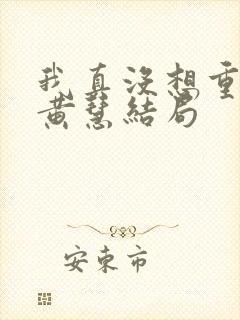 我真没想重
黄慧结局
安东市